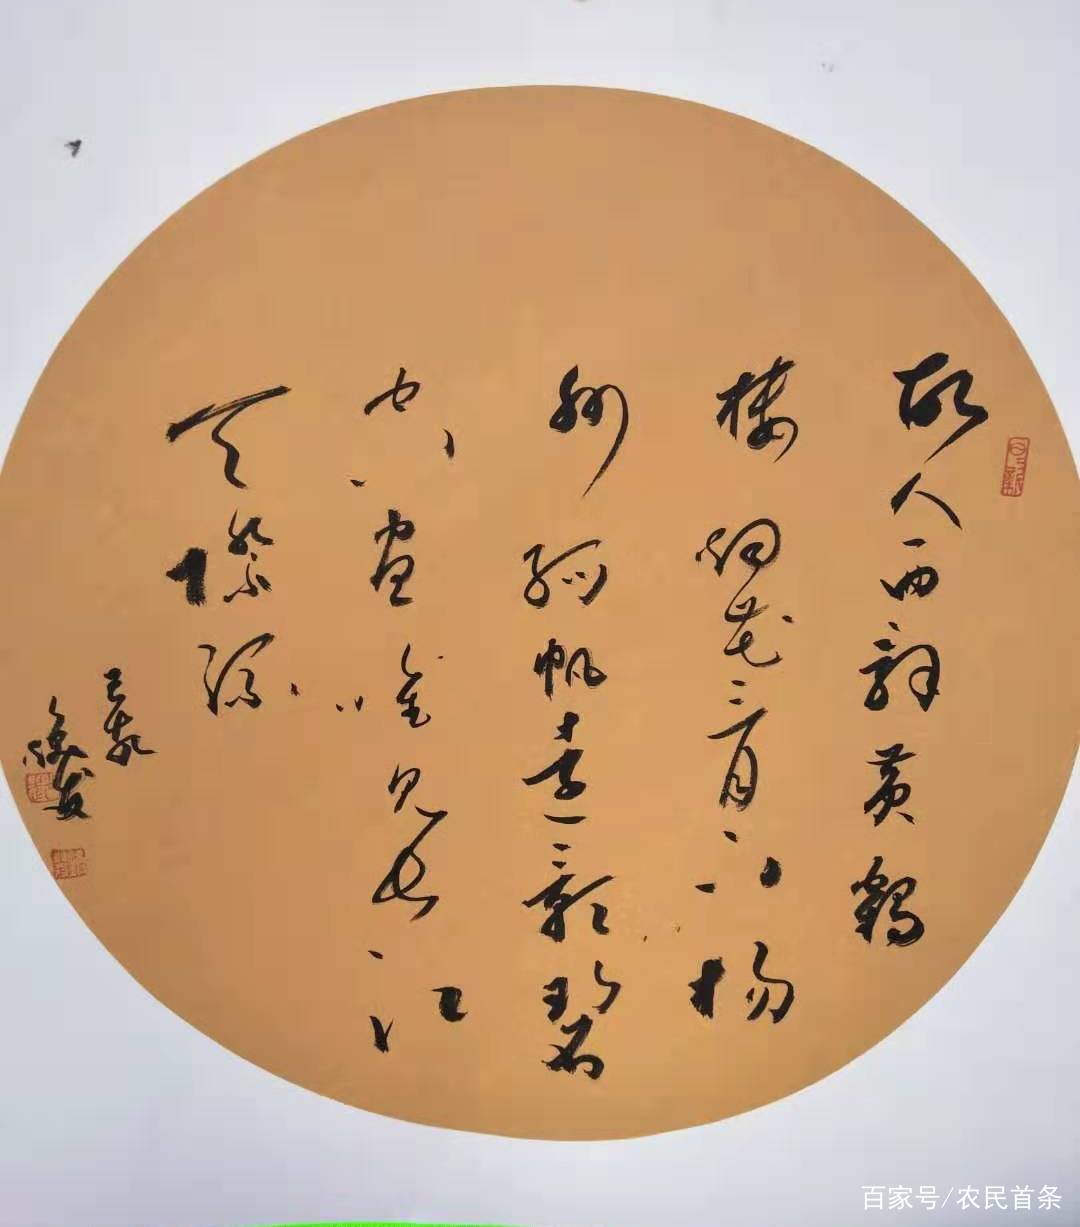 故人西辞黄鹤
楼烟花三月下扬
州孤帆远影碧
空尽唯见长江
天际流
己亥
百家号/农民首条